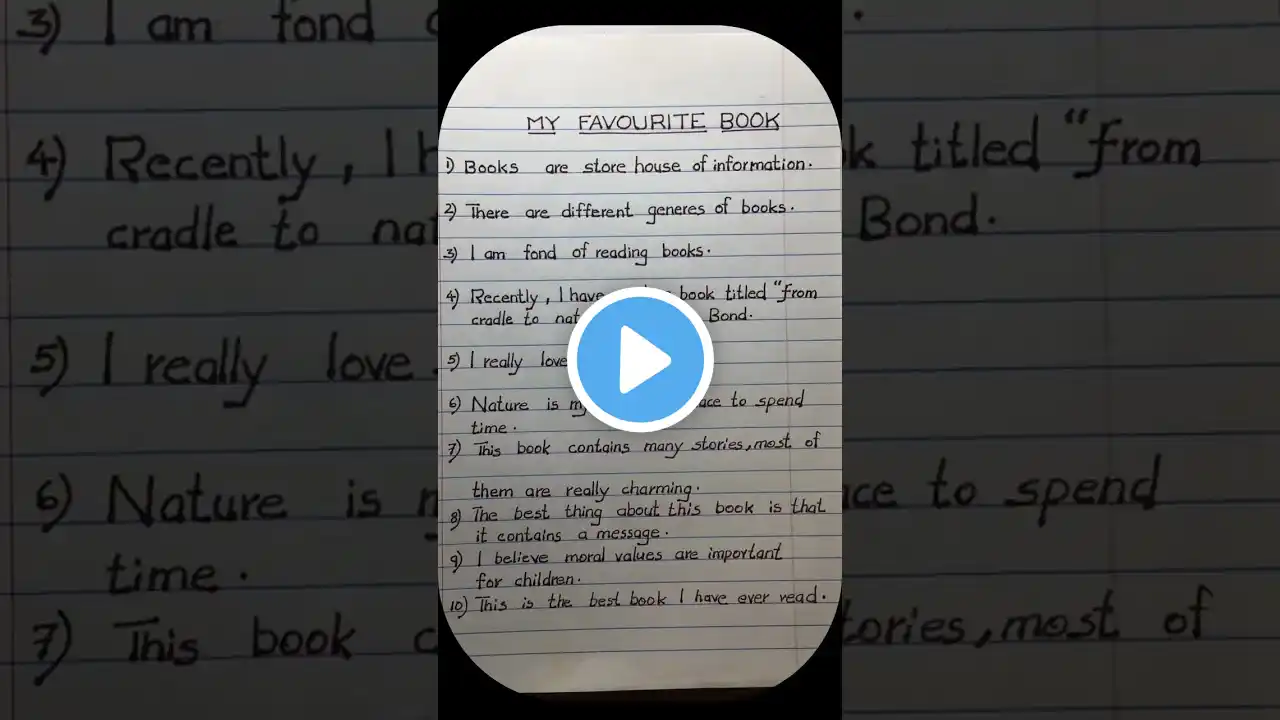 MY FAVOURITE BOOK
1) Books are store house of information.
2) There are different generes of books.
3) I am fond of reading books.
4) Recently, I have book titled "From
cradle to Bond.
5) I really love
6) Nature is to spend
time.
7) This book contains many stories, most of
them are really charming.
8) The best thing about this book is that
it contains a message.
9) I believe moral values are important
for children.
10) This is the best book I have ever read.